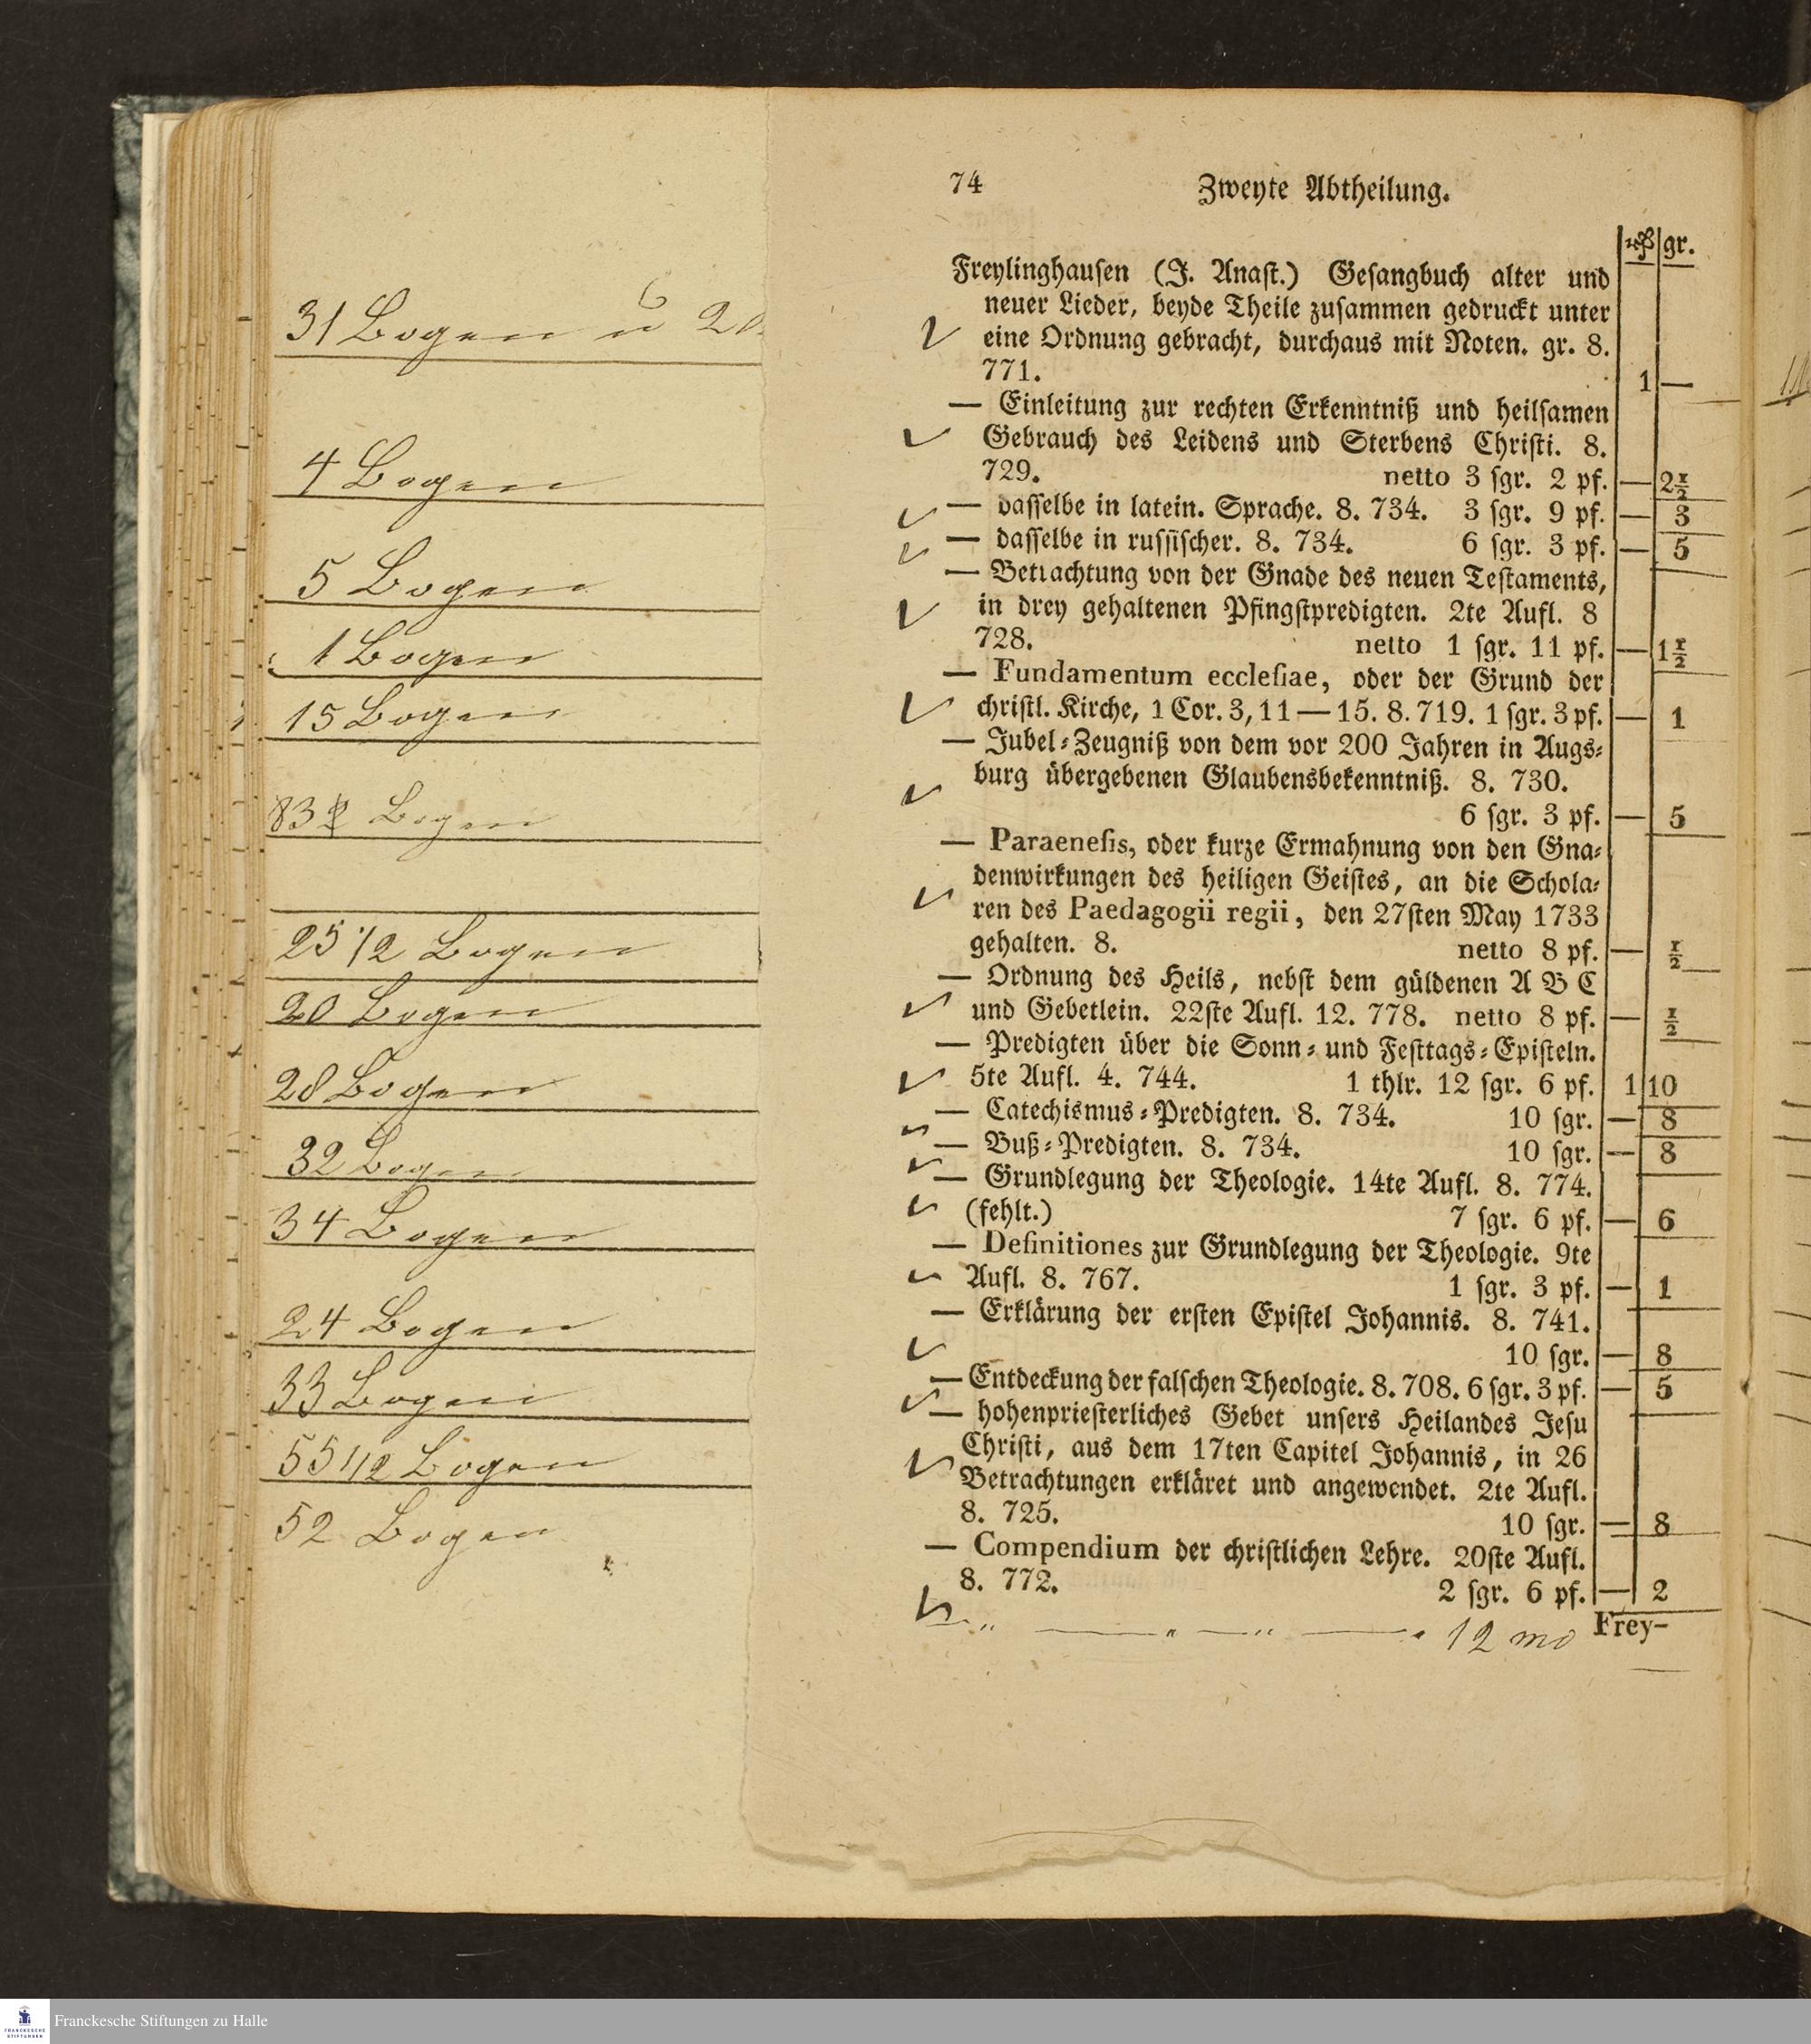 31 Bogen u 20
4 Bogen
5 Bogen
1 Bogen
15 Bogen
Bogen
25 1/2 Bogen
20 Bogen
28 Bogen
32 Bogen
34 Bogen
24 Bogen
33 Bogen
55 1/2 Bogen
52 Bogen
74 Zweyte Abtheilung.
rthl gr.
Freylinghausen (J. Anast.) Gesangbuch alter und
neuer Lieder, beyde Theile zusammen gedruckt unter
eine Ordnung gebracht, durchaus mit Noten. gr. 8.
771. 1 —
— Einleitung zur rechten Erkenntniß und heilsamen
Gebrauch des Leidens und Sterbens Christi. 8.
729. netto 3 sgr. 2 pf. — 2½
— dasselbe in latein. Sprache. 8. 734. 3 sgr. 9 pf. — 3
— dasselbe in russischer. 8. 734. 6 sgr. 3 pf. — 5
— Betrachtung von der Gnade des neuen Testaments,
in drey gehaltenen Pfingstpredigten. 2te Aufl. 8
728. netto 1 sgr. 11 pf. — 1½
— Fundamentum ecclesiae, oder der Grund der
christl. Kirche, 1 Cor. 3, 11—15. 8. 719. 1 sgr. 3 pf. — 1
— Jubel-Zeugniß von dem vor 200 Jahren in Augs-
burg übergebenen Glaubensbekenntniß. 8. 730.
6 sgr. 3 pf. — 5
— Paraenesis, oder kurze Ermahnung von den Gna-
denwirkungen des heiligen Geistes, an die Schola-
ren des Paedagogii regii, den 27sten May 1733
gehalten. 8. netto 8 pf. — ½
— Ordnung des Heils, nebst dem güldenen A B C
und Gebetlein. 22ste Aufl. 12. 778. netto 8 pf. — ½
— Predigten über die Sonn- und Festtags-Episteln.
5te Aufl. 4. 744. 1 thlr. 12 sgr. 6 pf. 1 10
— Catechismus-Predigten. 8. 734. 10 sgr. — 8
— Buß-Predigten. 8. 734. 10 sgr. — 8
— Grundlegung der Theologie. 14te Aufl. 8. 774.
(fehlt.) 7 sgr. 6 pf. — 6
— Definitiones zur Grundlegung der Theologie. 9te
Aufl. 8. 767. 1 sgr. 3 pf. — 1
— Erklärung der ersten Epistel Johannis. 8. 741.
10 sgr. — 8
— Entdeckung der falschen Theologie. 8. 708. 6 sgr. 3 pf. — 5
— hohenpriesterliches Gebet unsers Heilandes Jesu
Christi, aus dem 17ten Capitel Johannis, in 26
Betrachtungen erkläret und angewendet. 2te Aufl.
8. 725. 10 sgr. — 8
— Compendium der christlichen Lehre. 20ste Aufl.
8. 772. 2 sgr. 6 pf. — 2
„ — „ — „ — 12 mo
Frey-
Franckesche Stiftungen zu Halle